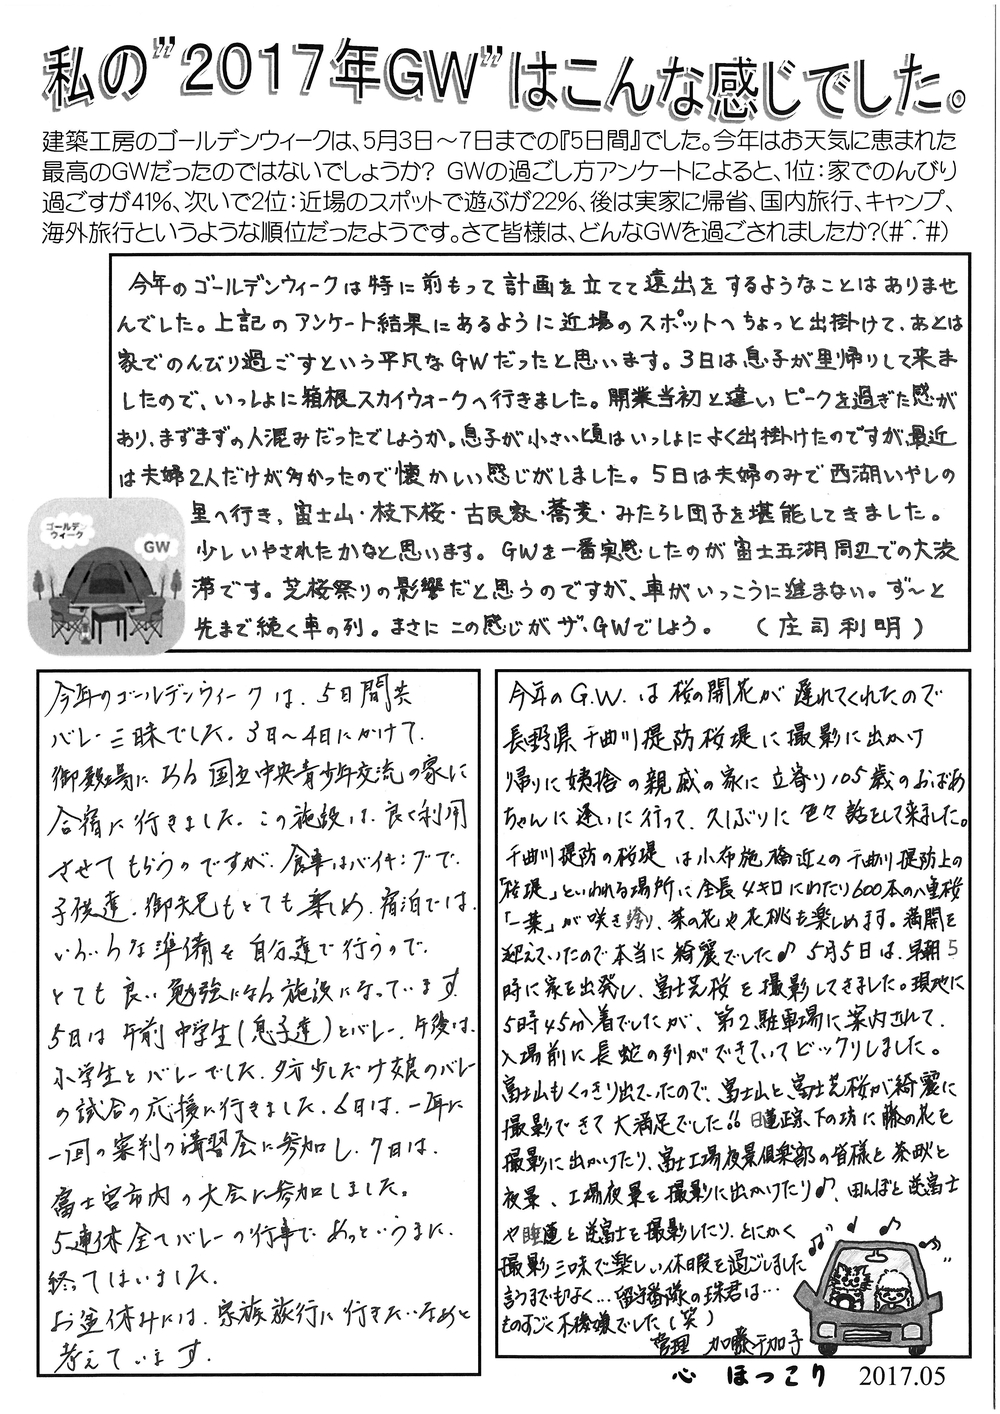 私の”2017年GW”はこんな感じでした。
建築工房のゴールデンウィークは、5月3日～7日までの『5日間』でした。今年はお天気に恵まれた
最高のGWだったのではないでしょうか? GWの過ごし方アンケートによると、1位：家でのんびり
過ごすが41%、次いで2位：近場のスポットで遊ぶが22%、後は実家に帰省、国内旅行、キャンプ、
海外旅行というような順位だったようです。さて皆様は、どんなGWを過ごされましたか?(#^.^#)
今年のゴールデンウィークは特に前もって計画を立てて遠出をするようなことはありませ
んでした。上記のアンケート結果にあるように近場のスポットへちょっと出掛けて、あとは
家でのんびり過ごすという平凡なGWだったと思います。3日は息子が里帰りして来ま
したので、いっしょに箱根スカイウォークへ行きました。開業当初と違いピークを過ぎた感が
あり、まずまずの人混みだったでしょうか。息子が小さい頃はいっしょによく出掛けたのですが、最近
は夫婦2人だけが多かったので懐かしい感じがしました。5日は夫婦のみで西湖いやしの
里へ行き、富士山・枝下桜・古民家・蕎麦・みたらし団子を堪能してきました。
少しいやされたかなと思います。GWを一番実感したのが富士五湖周辺での大渋
滞です。芝桜祭りの影響だと思うのですが、車がいっこうに進まない。ず～と
先まで続く車の列。まさにこの感じがザ、GWでしょう。 （庄司利明）
ゴールデン
ウィーク
GW
今年のゴールデンウィークは、5日間共
バレー三昧でした。3日～4日にかけて、
御殿場にある国立中央青少年交流の家に
合宿に行きました。この施設は、良く利用
させてもらうのですが、食事はバイキングで、
子供達、御父兄もとても楽しめ、宿泊では、
いろいろな準備を自分達で行うので、
とても良い勉強になる施設になっています。
5日は午前中学生(息子達)とバレー、午後は、
小学生とバレーでした。夕方少しだけ娘のバレー
の試合の応援に行きました。6日は、一年に
一回の審判の講習会に参加し、7日は、
富士宮市内の大会に参加しました。
5連休全てバレーの行事であっというまに、
終ってしまいました。
お盆休みには、家族旅行に行きたいなあと
考えています。
今年のG.W.は桜の開花が遅れてくれたので
長野県千曲川堤防桜堤に撮影に出かけ
帰りに姨捨の親戚の家に立寄り105歳のおばあ
ちゃんに逢いに行って、久しぶりに色々話をして来ました。
千曲川堤防の桜堤は小布施橋近くの千曲川堤防上の
「桜堤」といわれる場所に全長4キロにわたり600本の八重桜
「一葉」が咲き誇り、菜の花や花桃も楽しめます。満開を
迎えていたので本当に綺麗でした♪5月5日は、早朝5
時に家を出発し、富士芝桜を撮影してきました。現地に
5時45分着でしたが、第2駐車場に案内されて、
入場前に長蛇の列ができていてビックリしました。
富士山もくっきり出ていたので、富士山と富士芝桜が綺麗に
撮影できて大満足でした!!日蓮正宗、下の坊に藤の花を
撮影に出かけたり、富士工場夜景倶楽部の皆様と茶畑と
夜景、工場夜景を撮影に出かけたり♪、田んぼと逆富士
や睡蓮と逆富士を撮影したり、とにかく
撮影三味で楽しい休暇を過ごしました
言うまでもなく…留守番隊の珠君は…
ものすごく不機嫌でした(笑)
管理 加藤千加子
心 ほっこり 2017.05